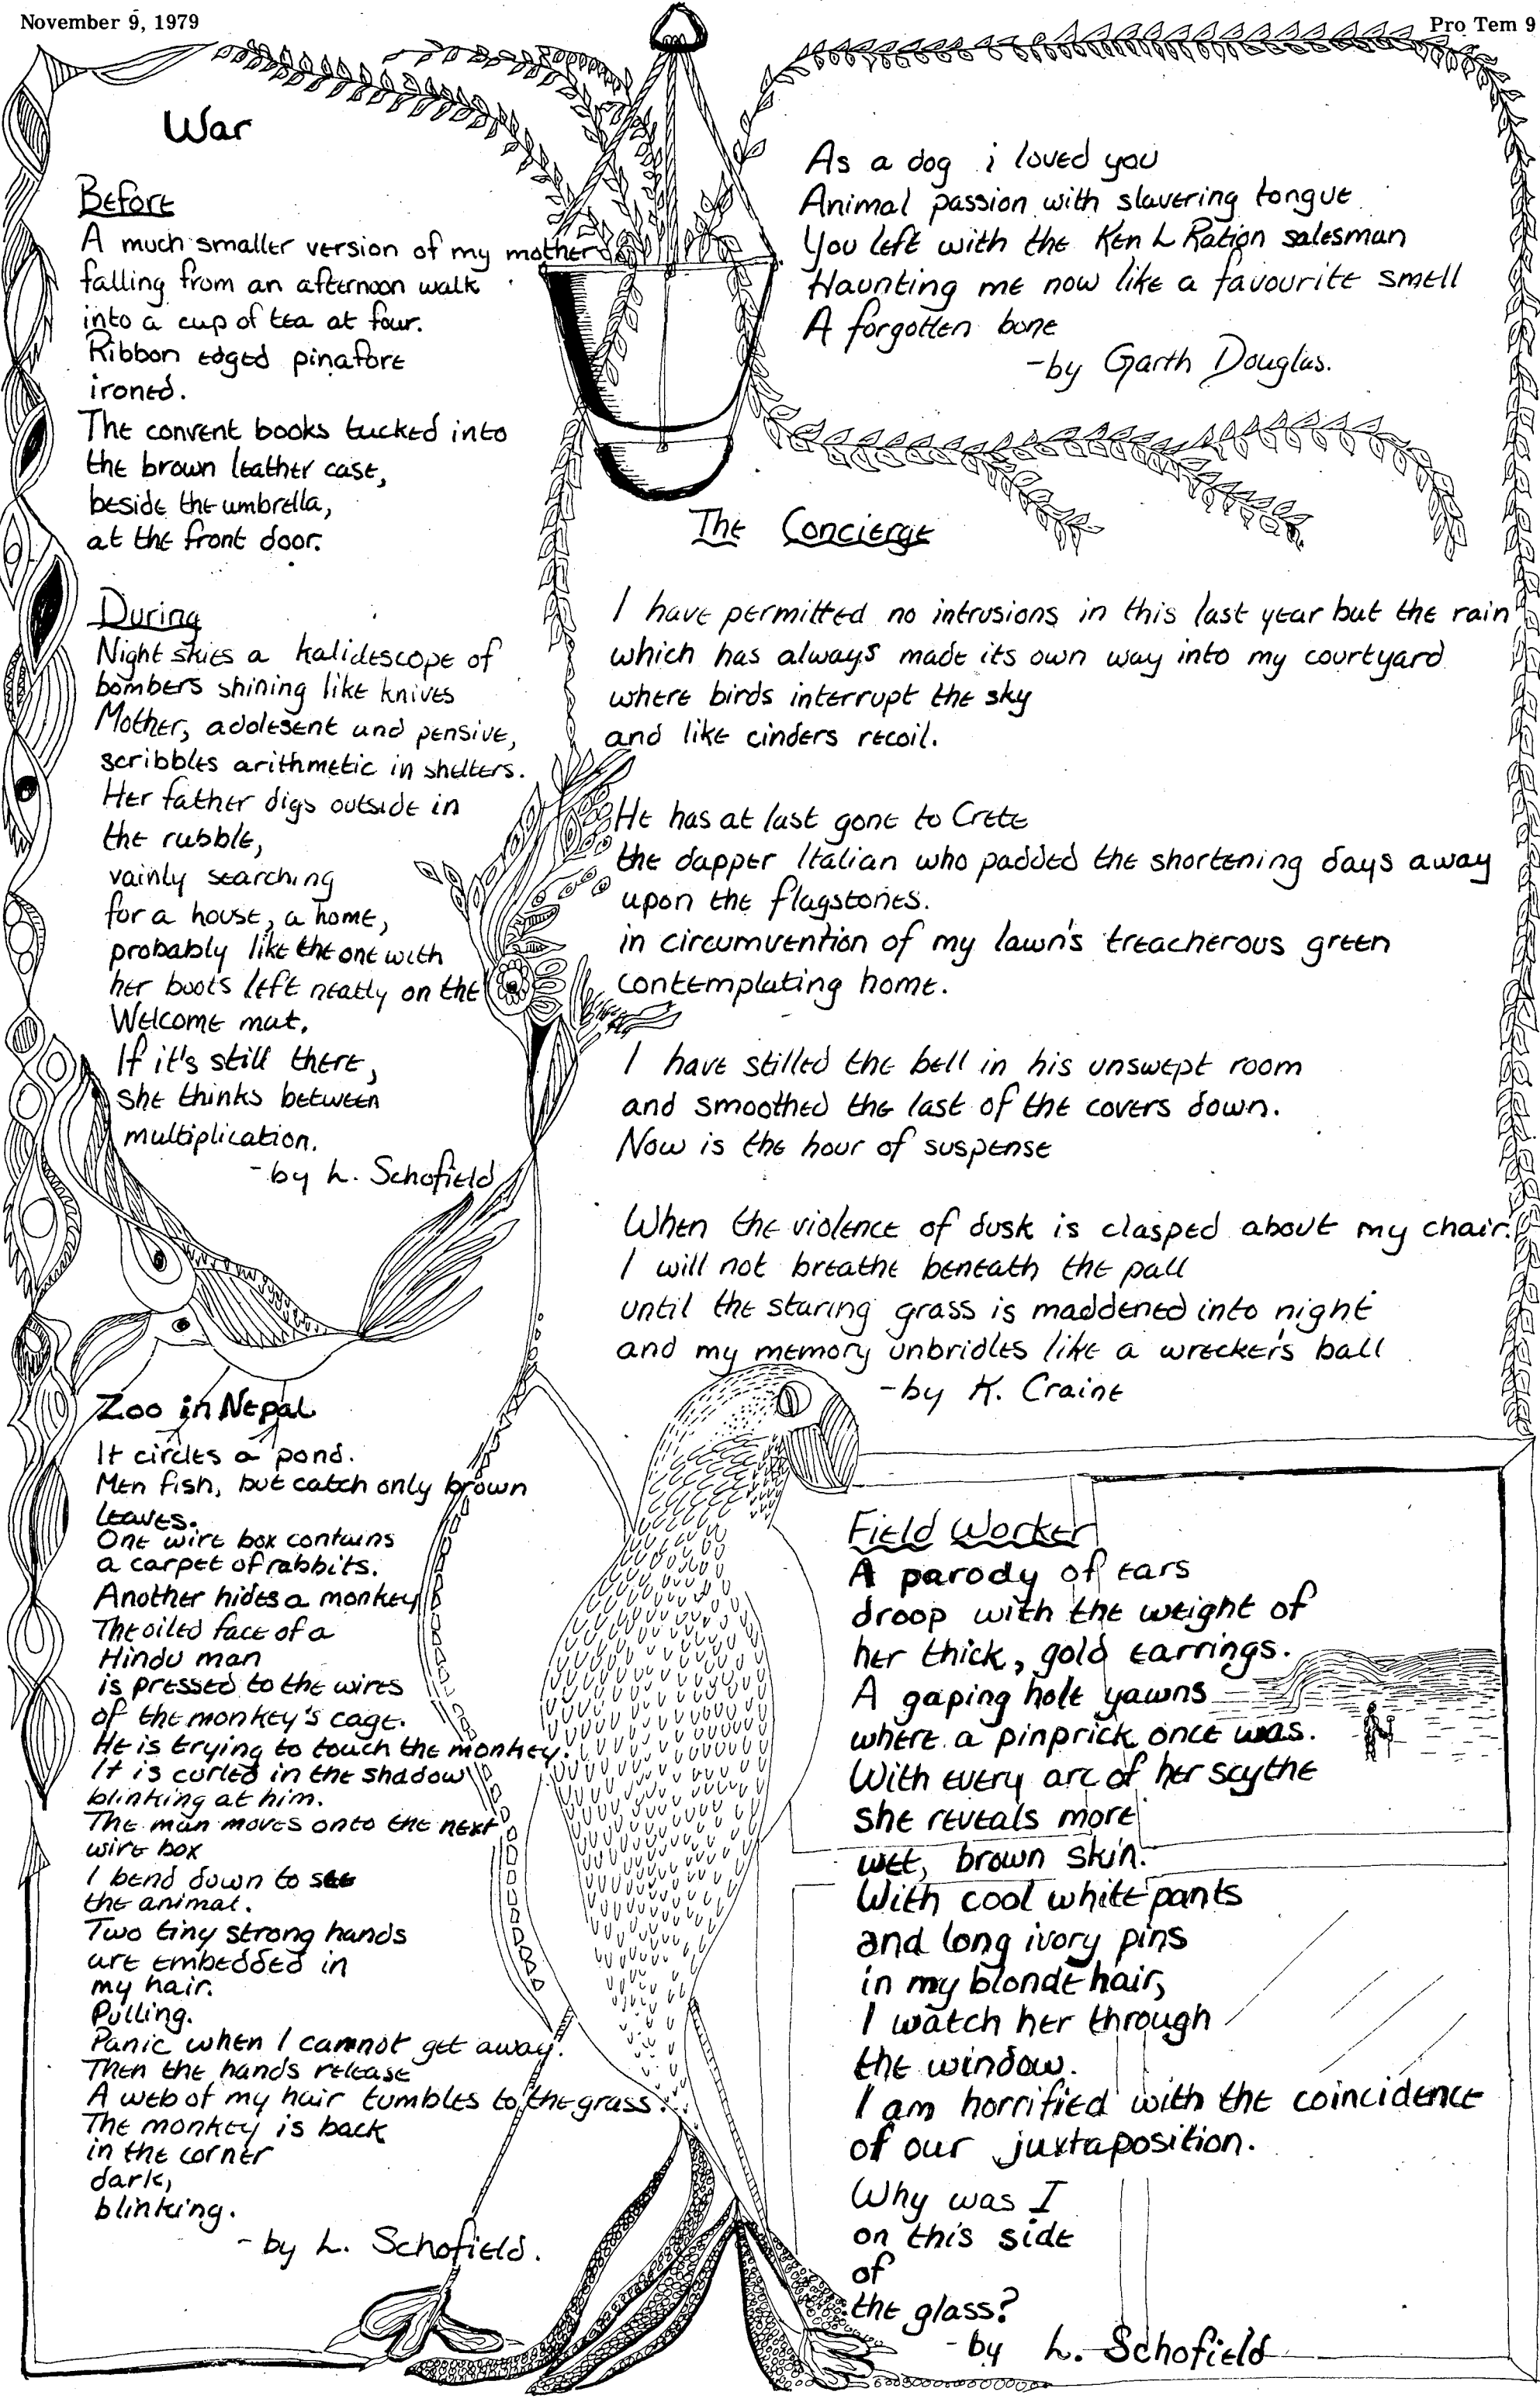 November 9, 1979
Pro Tem 9
War
Before
A much smaller version of my mother
falling from an afternoon walk
into a cup of tea at four.
Ribbon edged pinafore
ironed.
The convent books tucked into
the brown leather case,
beside the umbrella,
at the front door.
During
Night skies a kalidescope of
bombers shining like knives
Mother, adolesent and pensive,
scribbles arithmetic in shelters.
Her father digs outside in
the rubble,
vainly searching
for a house, a home,
probably like the one with
her boots left neatly on the
Welcome mat.
If it's still there,
she thinks between
multiplication.
- by L. Schofield
Zoo in Nepal
It circles a pond.
Men fish, but catch only brown
leaves.
One wire box contains
a carpet of rabbits.
Another hides a monkey
The oiled face of a
Hindu man
is pressed to the wires
of the monkey's cage.
He is trying to touch the monkey.
It is curled in the shadow
blinking at him.
The man moves onto the next
wire box
I bend down to see
the animal.
Two tiny strong hands
are embedded in
my hair.
Pulling.
Panic when I cannot get away.
Then the hands release
A web of my hair tumbles to the grass.
The monkey is back
in the corner
dark,
blinking.
- by L. Schofield.
As a dog i loved you
Animal passion with slavering tongue
You left with the Ken L Ration salesman
Haunting me now like a favourite smell
A forgotten bone
- by Garth Douglas.
The Concierge
I have permitted no intrusions in this last year but the rain
which has always made its own way into my courtyard
where birds interrupt the sky
and like cinders recoil.
He has at last gone to Crete
the dapper Italian who padded the shortening days away
upon the flagstones.
in circumvention of my lawn's treacherous green
contemplating home.
I have stilled the bell in his unswept room
and smoothed the last of the covers down.
Now is the hour of suspense
When the violence of dusk is clasped about my chair.
I will not breathe beneath the pall
until the staring grass is maddened into night
and my memory unbridles like a wrecker's ball
- by K. Craine
Field Worker
A parody of ears
droop with the weight of
her thick, gold earrings.
A gaping hole yawns
where a pinprick once was.
With every arc of her scythe
she reveals more
wet, brown skin.
With cool white pants
and long ivory pins
in my blonde hair,
I watch her through
the window.
I am horrified with the coincidence
of our juxtaposition.
Why was I
on this side
of
the glass?
- by L. Schofield